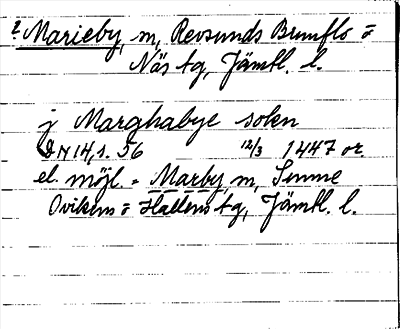 ? Marieby, m, Revsunds Brunflo o
Näs tg, Jämtl. l.
j Marghabye sokn
DN 14, s. 56 12/3 1447 or.
el. möjl. = Marby, m, Sunne
Ovikens o Hallens tg, Jämtl. l.